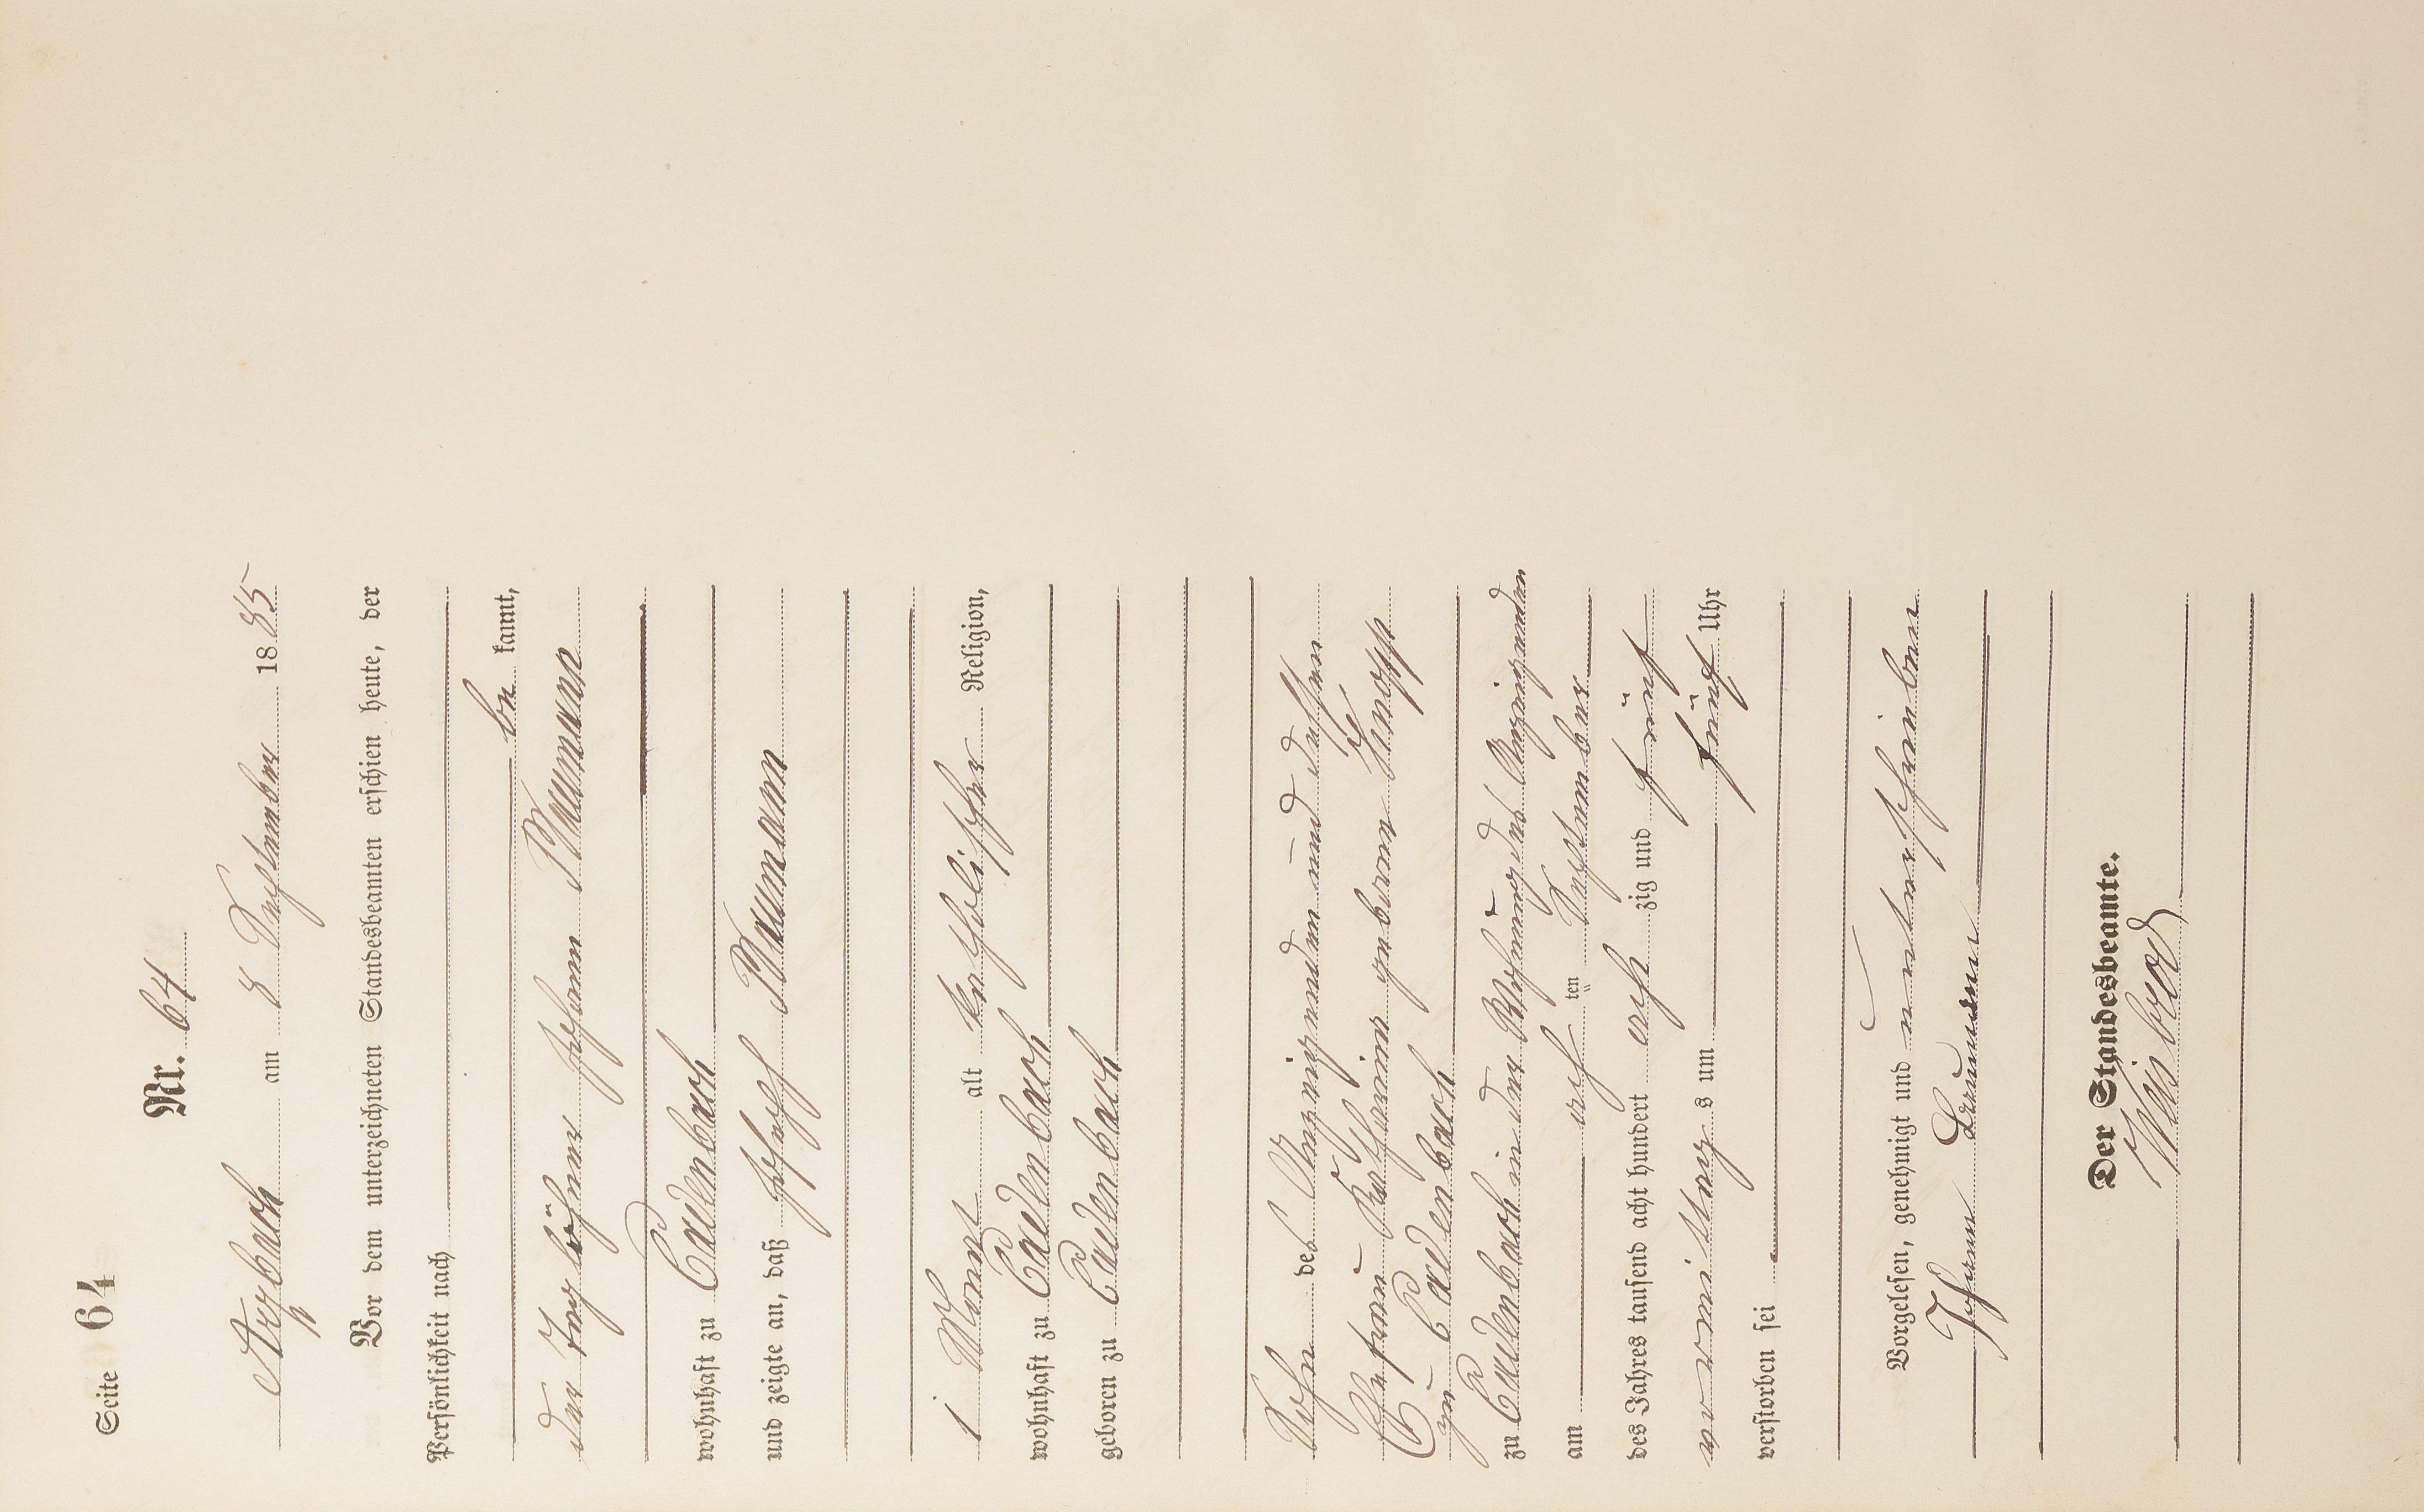 Seite 64
Nr. 64
Arzbach am 8 September 1885
Vor dem unterzeichneten Standesbeamten erschien heute, der
Persönlichkeit nach
be kannt,
der Taglöhner Johann Naumann
wohnhaft zu Cadenbach
und zeigte an, daß Joseph Naumann
1 Monat alt katholischer Religion,
wohnhaft zu Cadenbach
geboren zu Cadenbach
Sohn des Anzeigenden und dessen
Ehefrau Katharina geborene Knopp
zu Cadenbach
zu Cadenbach in der Wohnung des Anzeigenden
am acht ten September
des Jahres tausend acht hundert acht zig und fünf
vormittag s um fünf Uhr
verstorben sei
Vorgelesen, genehmigt und unterschrieben
Johann Naumann
Der Standesbeamte.